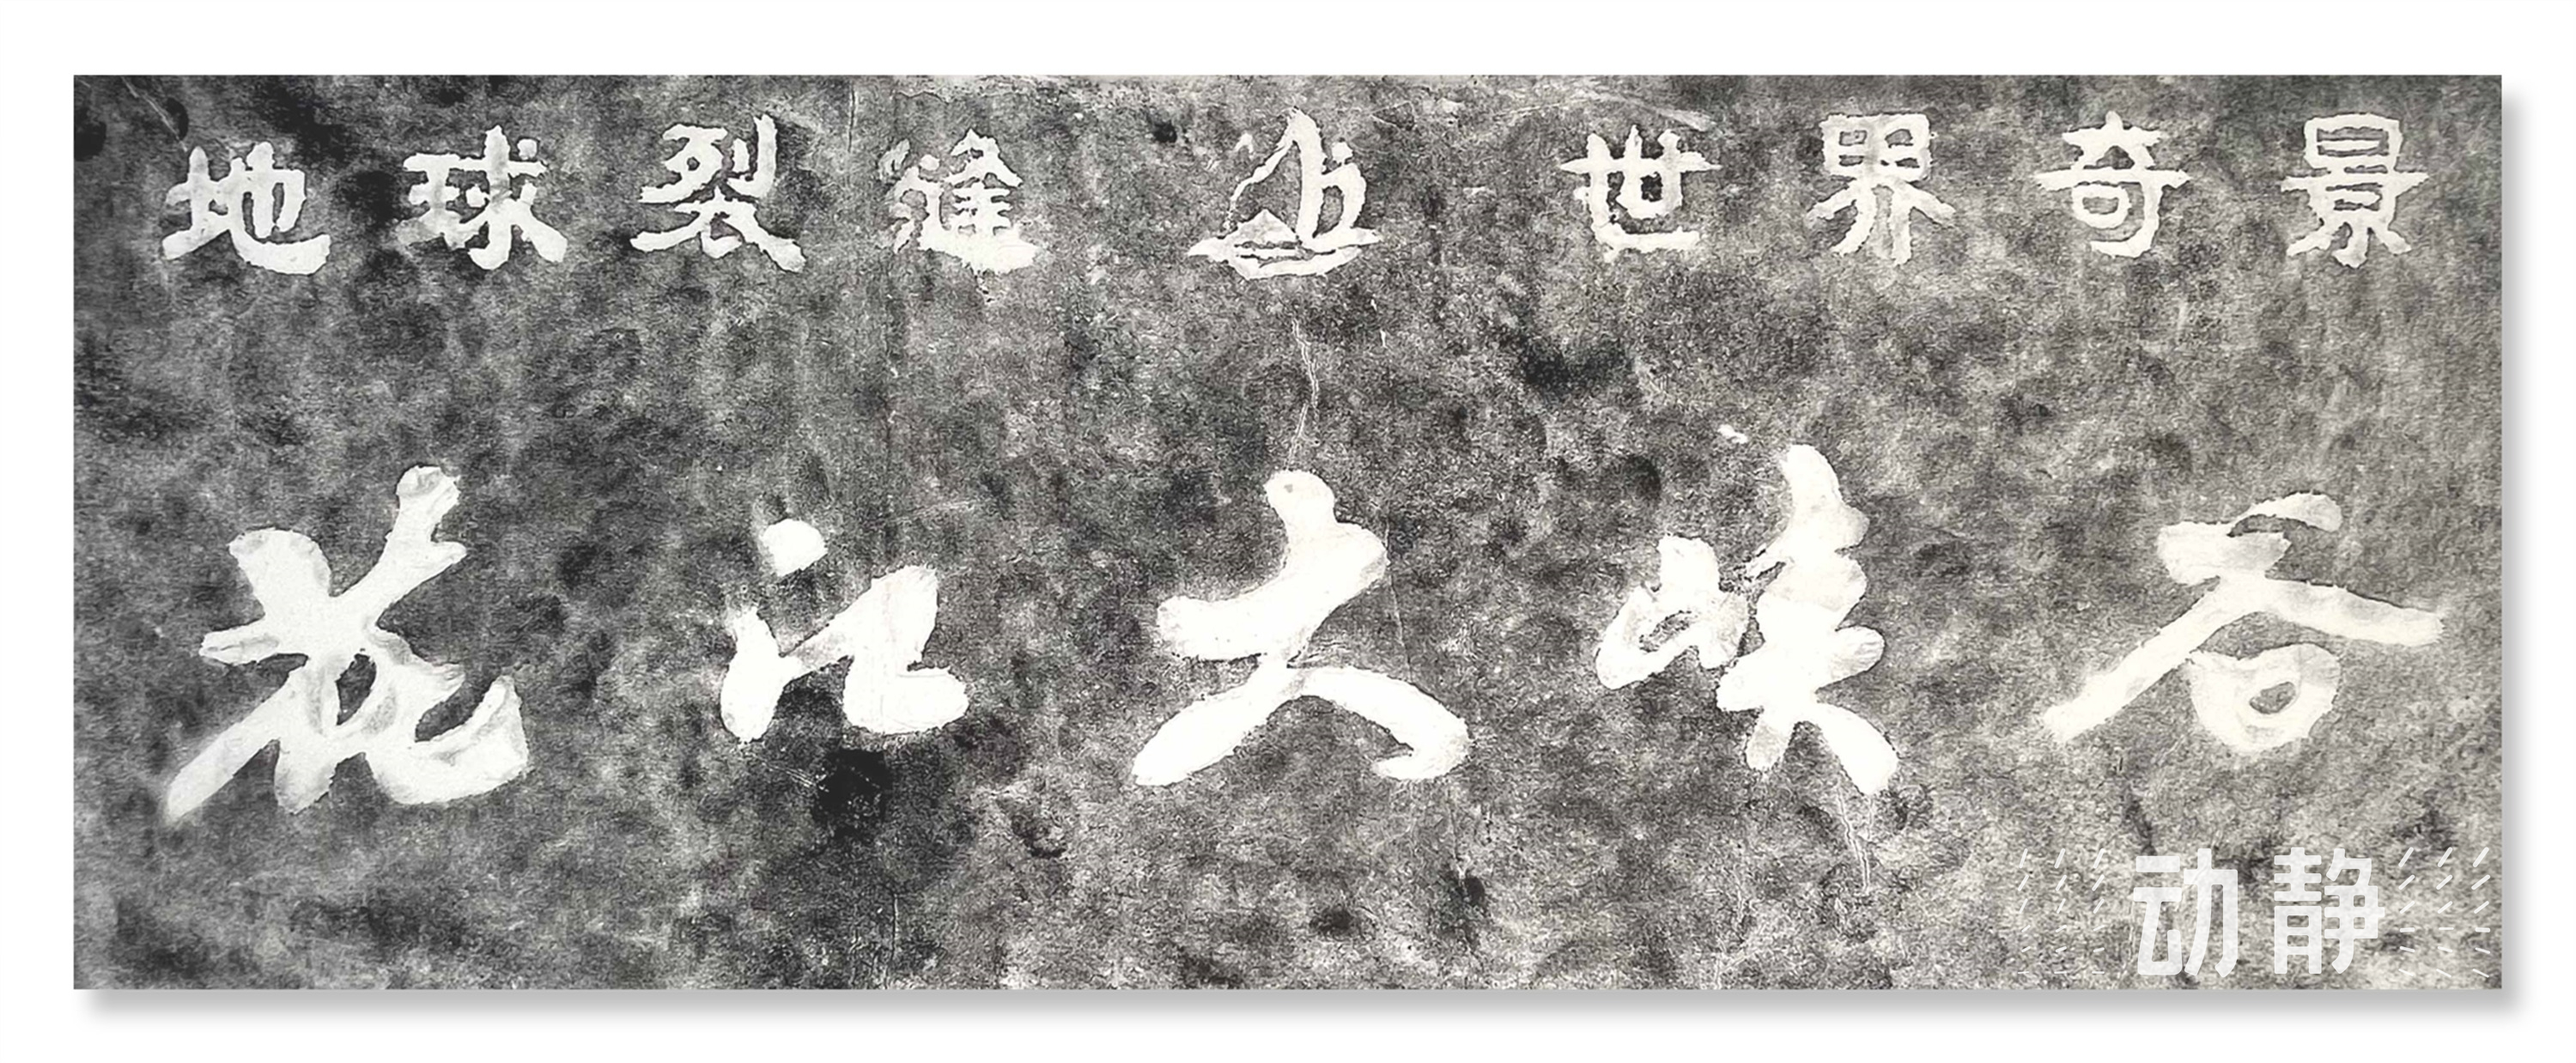 地球裂缝 世界奇景
花江大峡谷
动静